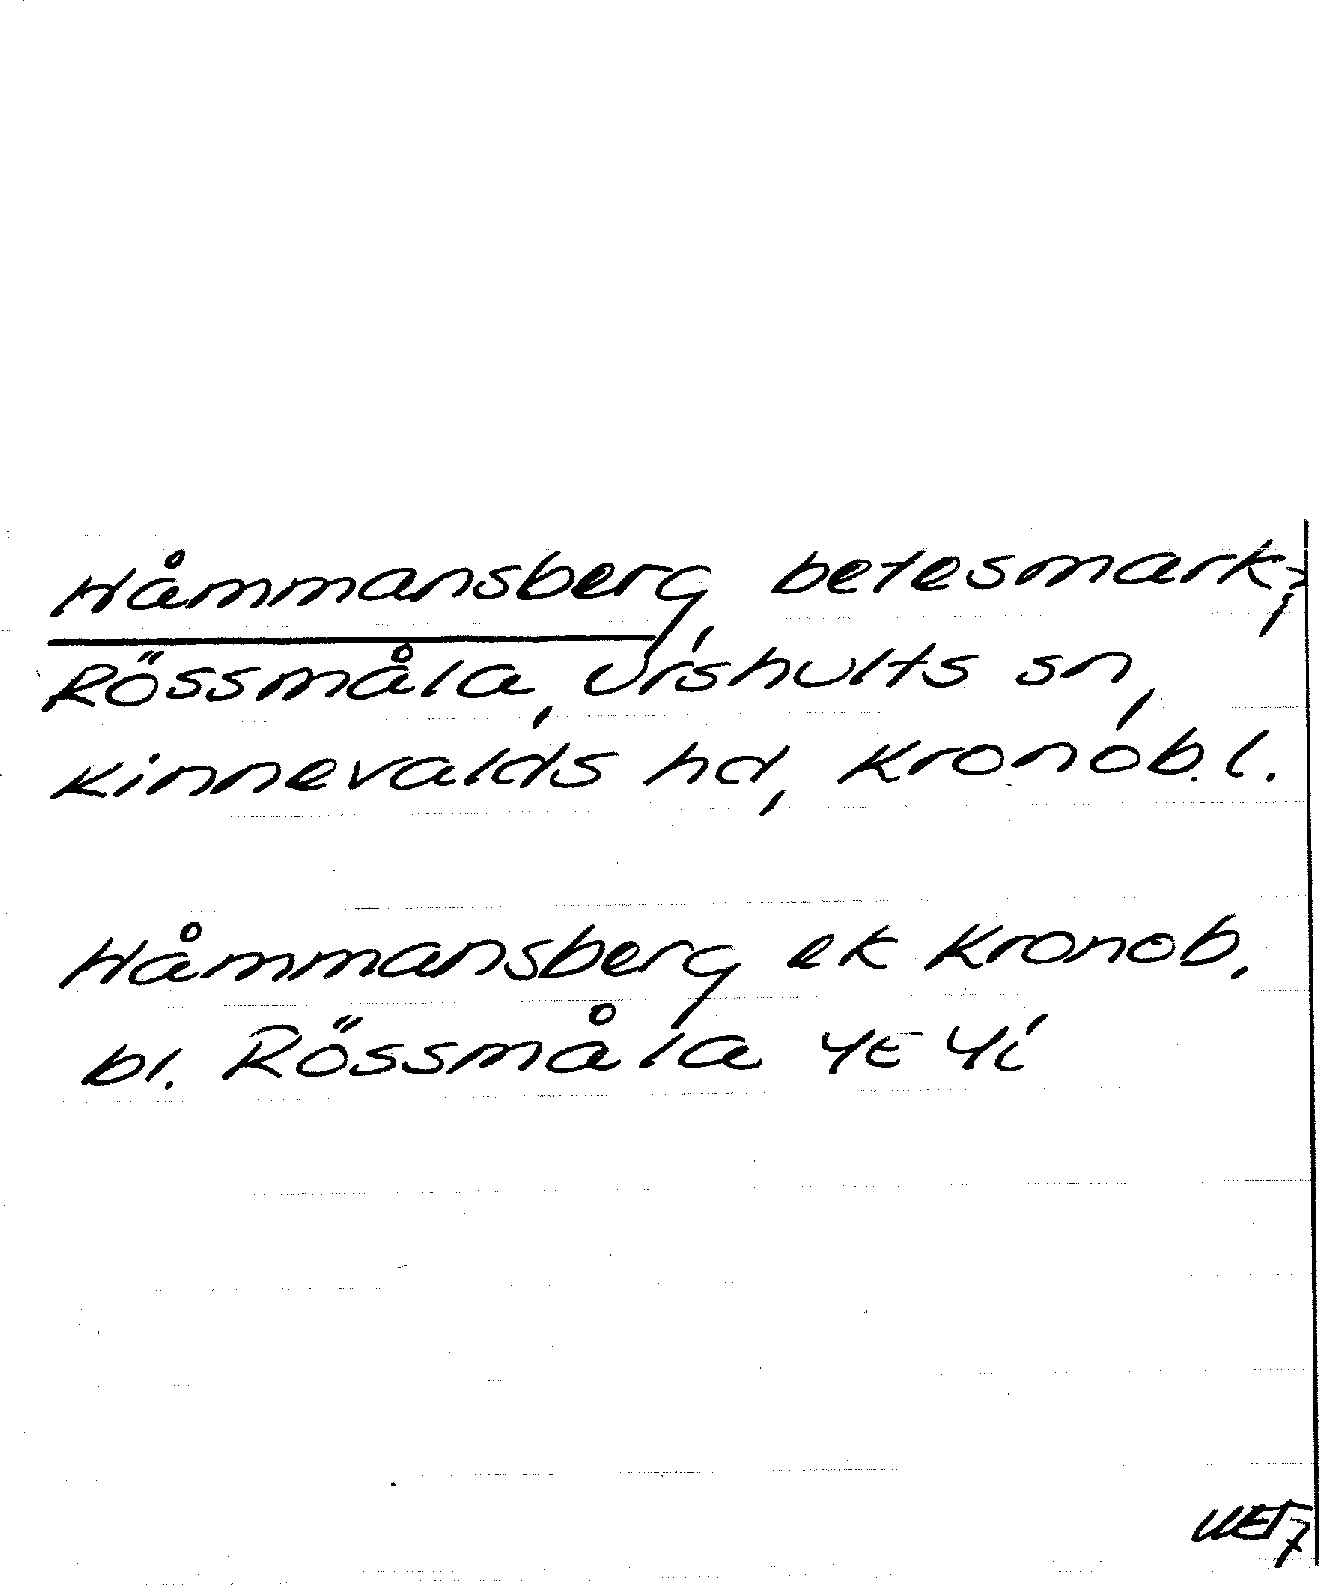 Håmmansberg, betesmark,
Rössmåla, Urshults sn,
Kinnevalds hd, Kronob. l.
Håmmansberg ek Kronob.
bl. Rössmåla 4E 4i